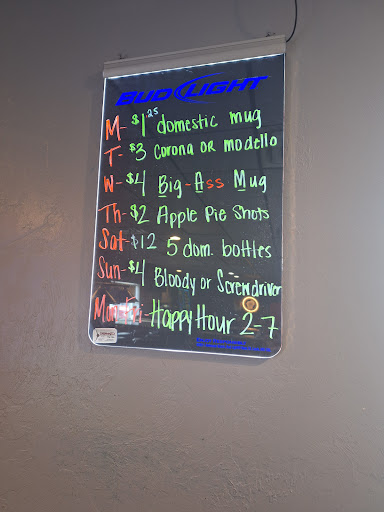 BUD LIGHT
M- $1.25 domestic mug
T- $3 Corona OR modello
W- $4 Big-Ass Mug
Th- $2 Apple Pie Shots
Sat- $12 5 dom. bottles
Sun- $4 Bloody or Screwdriver
Mon-Fri Happy Hour 2-7